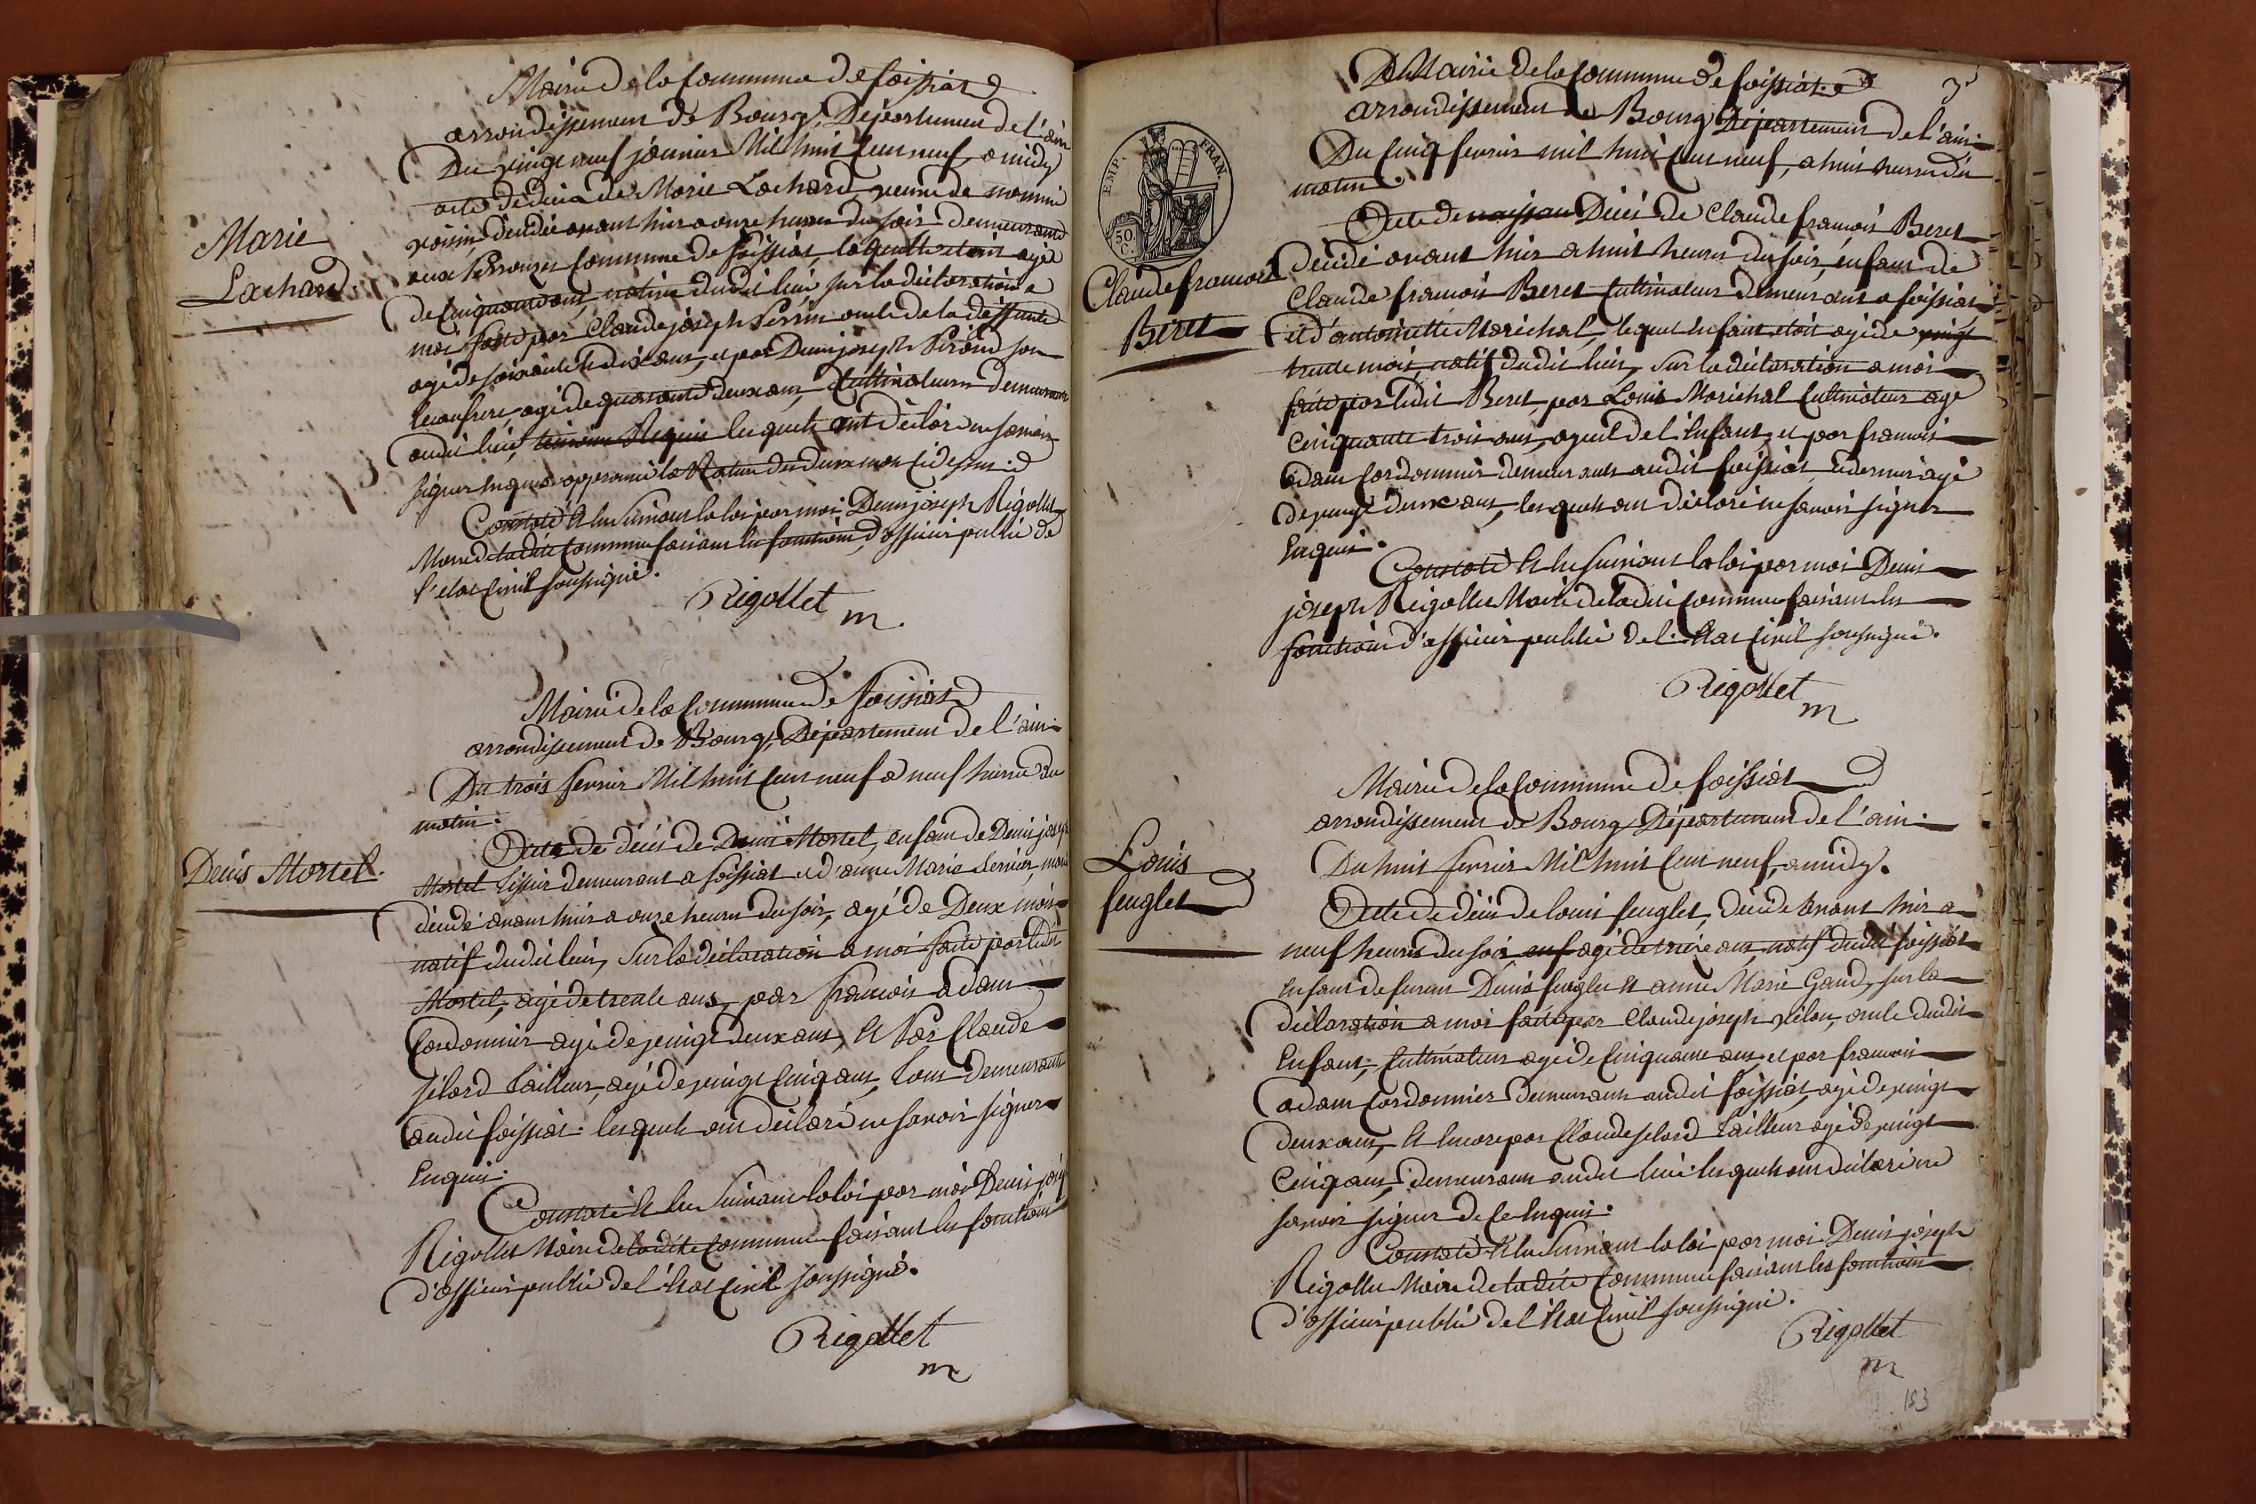 Mairie de la Commune de foissiat
arrondissement de Bourg, Département de l'ain
Du vingt neuf janvier Mil huit Cent neuf, a midy
acte de décès de Marie Lachard veuve de
voisin, décédée avant hier a onze heures du soir Demeurante
aux Perrouses Commune de foissiat, laquelle etoit agée
de Cinquante ans, native dudit lieu sur la déclaration a
moi faite par Claude joseph Perrin oncle de la deffunte
agé de soixante et dix ans, et par Denis joseph son
beaufrere agé de quarante deux ans, Cultivateurs demeurant
audit lieu, Requis lesquels ont déclaré ne savoir
signer Enquis
Constaté et lu suivant la loi par moi Denis joseph Rigollet
Maire de ladite Commune faisant les fonctions d'officier public de
l'etat Civil soussigné.
Rigollet
m.
Marie
Lachard
Mairie de la Commune de foissiat
arrondissement de Bourg, Département de l'ain
Du trois fevrier Mil huit Cent neuf a neuf heures du
matin.
Acte de décès de Denis Mortel, enfant de Denis joseph
Mortel tissier demeurant a foissiat et d'anne Marie
décédé avant hier a onze heures du soir, agé de Deux mois
natif dudit lieu, Sur la déclaration a moi faite par ledit
Mortel, agé de trente ans, par francois adam
Cordonnier agé de vingt deux ans, et Par Claude
felard tailleur, agé de vingt Cinq ans, tous demeurants
audit foissiat. lesquels ont déclaré ne savoir signer
Enquis.
Constaté et lu suivant la loi par moi Denis joseph
Rigollet Maire de ladite Commune faisant les fonctions
d'officier public de l'état Civil soussigné.
Rigollet
m
Denis Mortel.
3
Mairie de la Commune de foissiat
arrondissement de Bourg Département de l'ain
Du Cinq fevrier mil huit Cent neuf, a huit heures du
matin
Acte de naissan Décès de Claude francois Beret
décédé avant hier a huit heures du soir, enfant de
Claude francois Beret Cultivateur demeurant a foissiat
et d'antoinette Maréchal, lequel enfant etoit agé de vingt
trente mois, natif dudit lieu, Sur la déclaration a moi
faite par ledit Beret, par Louis Maréchal Cultivateur agé
Cinquante trois ans, ayeul de l'Enfant, et par francois
adam Cordonnier demeurants audit foissiat, dernier agé
de vingt deux ans, lesquels ont déclaré ne savoir signer
Enquis.
Constaté et lu suivant la loi par moi Denis
joseph Rigollet Maire de ladite Commune faisant les
fonctions d'officier public de l'état Civil soussigné.
Rigollet
m
EMP. FRAN.
50
C.
Claude francois
Beret
Mairie de la Commune de foissiat
arrondissement de Bourg Département de l'ain.
Du huit fevrier Mil huit Cent neuf, a midy.
Acte de décès de louis feuglet, décédé avant hier a
neuf heures du soir, agé de treize ans, natif dudit foissiat
Enfant de furent Denis feuglet et anne Marie Gaud, sur la
déclaration a moi faite par Claude joseph velon, oncle dudit
Enfant, Cultivateur agé de Cinquante ans, et par francois
adam Cordonnier demeurant audit foissiat, agé de vingt
deux ans, et Encore par Claude felard tailleur agé de vingt
Cinq ans, demeurants audit lieu lesquels ont déclaré ne
savoir signer de Ce Enquis.
Constaté et lu suivant la loi par moi Denis joseph
Rigollet Maire de ladite Commune faisant les fonctions
d'officier public de l'état Civil soussigné.
Rigollet
m
Louis
feuglet
183